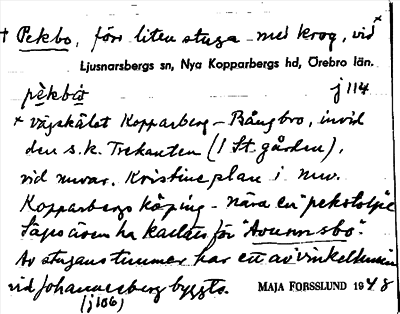 + Pekbo, förr liten stuga med krog, vid x
Ljusnarsbergs sn, Nya Kopparbergs hd, Örebro län.
pèkbò j 114
x vägskälet Kopparberg – Bångbro, invid
den s.k. Trekanten (1 St. gården),
vid nuvar. Kristineplan i nuv.
Kopparbergs köping – nära en "pekstolpe
Säges även ha kallats för "Avunnsbo".
Av stugans timmer har ett av vinkelhusen
vid Johannesberg byggts. MAJA FORSSLUND 1948
(j106)